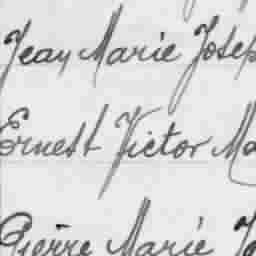 Jean Marie Josep
Ernest Victor Ma
Pierre Marie Jo